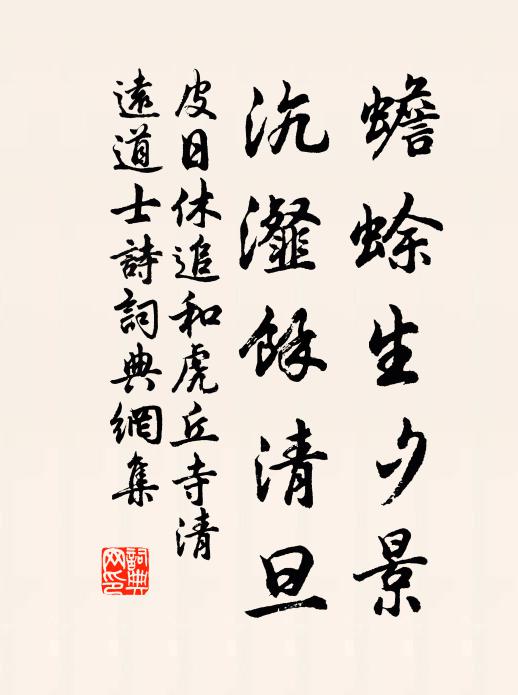 蟾蜍生夕景
沆瀣餘清旦
皮日休追和虎丘寺清
遠道士詩詞典網集
詞典
网印